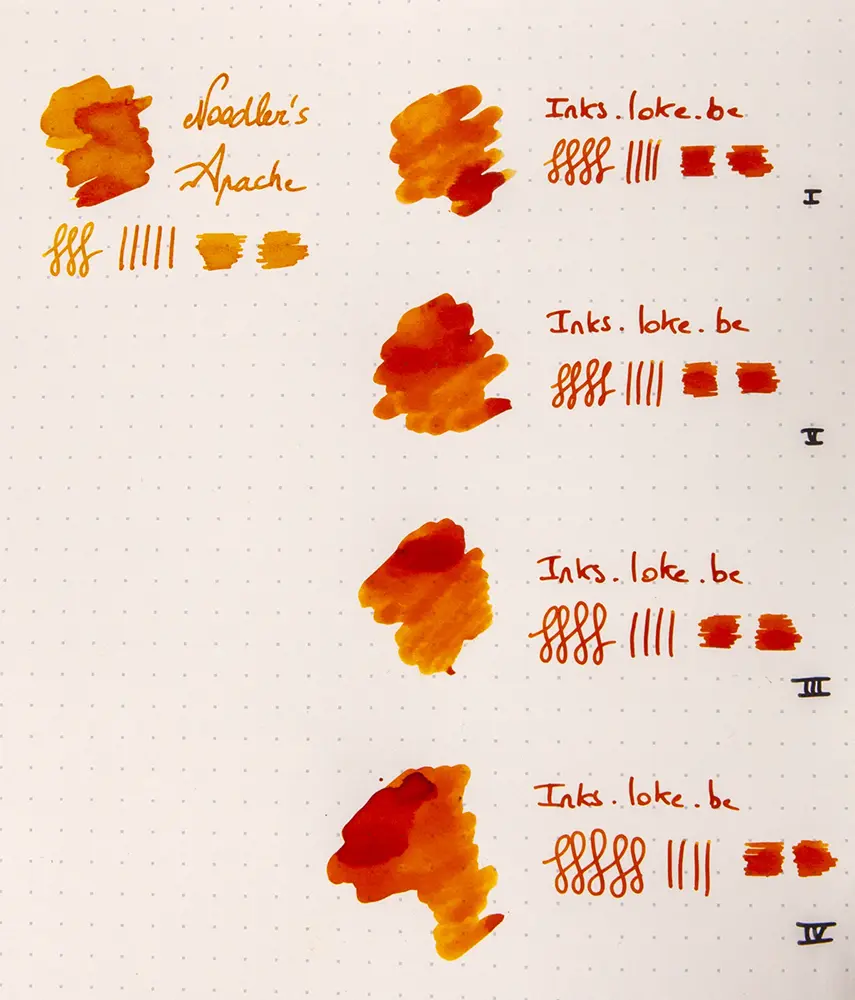 Noodler's
Apache
Inks.loke.be
I
Inks.loke.be
II
Inks.loke.be
III
Inks.loke.be
IV